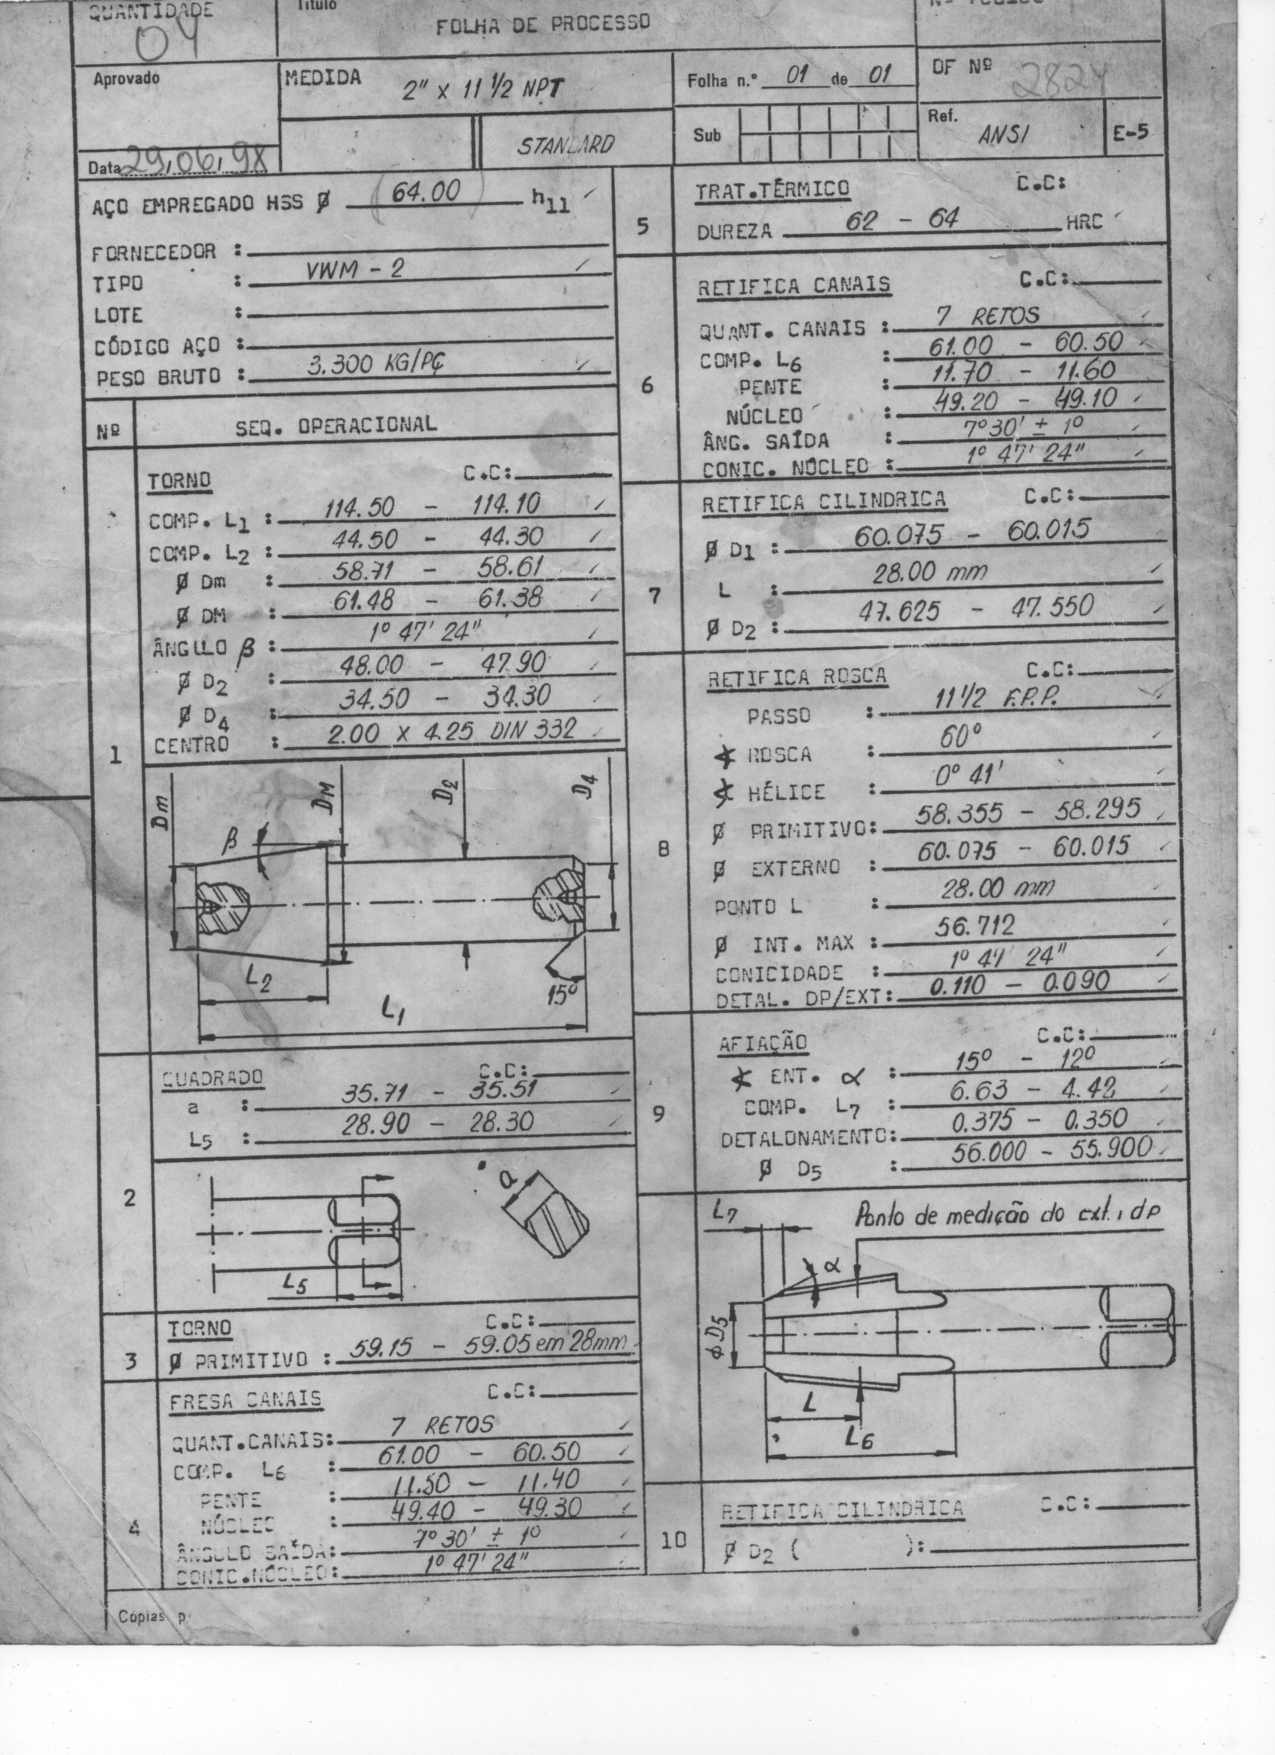 QUANTIDADE
04
Título
FOLHA DE PROCESSO
Aprovado
MEDIDA
2" x 11 1/2 NPT
STANDARD
Folha n.º 01 de 01
Sub
OF Nº
2824
Ref.
ANSI
E-5
Data 29,06,98
AÇO EMPREGADO HSS Ø (64.00) h11
FORNECEDOR :
TIPO : VWM - 2
LOTE :
CÓDIGO AÇO :
PESO BRUTO : 3.300 KG/PÇ
Nº
SEQ. OPERACIONAL
1
TORNO C.C:
COMP. L1 : 114.50 - 114.10
COMP. L2 : 44.50 - 44.30
Ø Dm : 58.71 - 58.61
Ø DM : 61.48 - 61.38
ÂNGULO β : 1º 47' 24"
Ø D2 : 48.00 - 47.90
Ø D4 : 34.50 - 34.30
CENTRO : 2.00 X 4.25 DIN 332
Dm
β
DM
D2
D4
L2
L1
15º
2
QUADRADO C.C:
a : 35.71 - 35.51
L5 : 28.90 - 28.30
a
L5
3
TORNO C.C:
Ø PRIMITIVO : 59.15 - 59.05 em 28mm
4
FRESA CANAIS C.C:
QUANT.CANAIS: 7 RETOS
COMP. L6 : 61.00 - 60.50
PENTE : 11.50 - 11.40
NÚCLEO : 49.40 - 49.30
ÂNGULO SAÍDA: 7º 30' ± 1º
CONIC.NÚCLEO: 1º 47' 24"
5
TRAT.TÉRMICO C.C:
DUREZA 62 - 64 HRC
6
RETIFICA CANAIS C.C:
QUANT. CANAIS : 7 RETOS
COMP. L6 : 61.00 - 60.50
PENTE : 11.70 - 11.60
NÚCLEO : 49.20 - 49.10
ÂNG. SAÍDA : 7º30' ± 1º
CONIC. NÚCLEO : 1º 47' 24"
7
RETIFICA CILINDRICA C.C:
Ø D1 : 60.075 - 60.015
L : 28.00 mm
Ø D2 : 47.625 - 47.550
8
RETIFICA ROSCA C.C:
PASSO : 11 1/2 F.P.P.
∢ ROSCA : 60º
∢ HÉLICE : 0º 41'
Ø PRIMITIVO: 58.355 - 58.295
Ø EXTERNO : 60.075 - 60.015
PONTO L : 28.00 mm
Ø INT. MAX : 56.712
CONICIDADE : 1º 47' 24"
DETAL. DP/EXT: 0.110 - 0.090
9
AFIAÇÃO C.C:
∢ ENT. α : 15º - 12º
COMP. L7 : 6.63 - 4.42
DETALONAMENTO: 0.375 - 0.350
Ø D5 : 56.000 - 55.900
L7
Ponto de medição do ext. , dp
α
φ D5
L
L6
10
RETIFICA CILINDRICA C.C:
Ø D2 ( ):
Cópias p